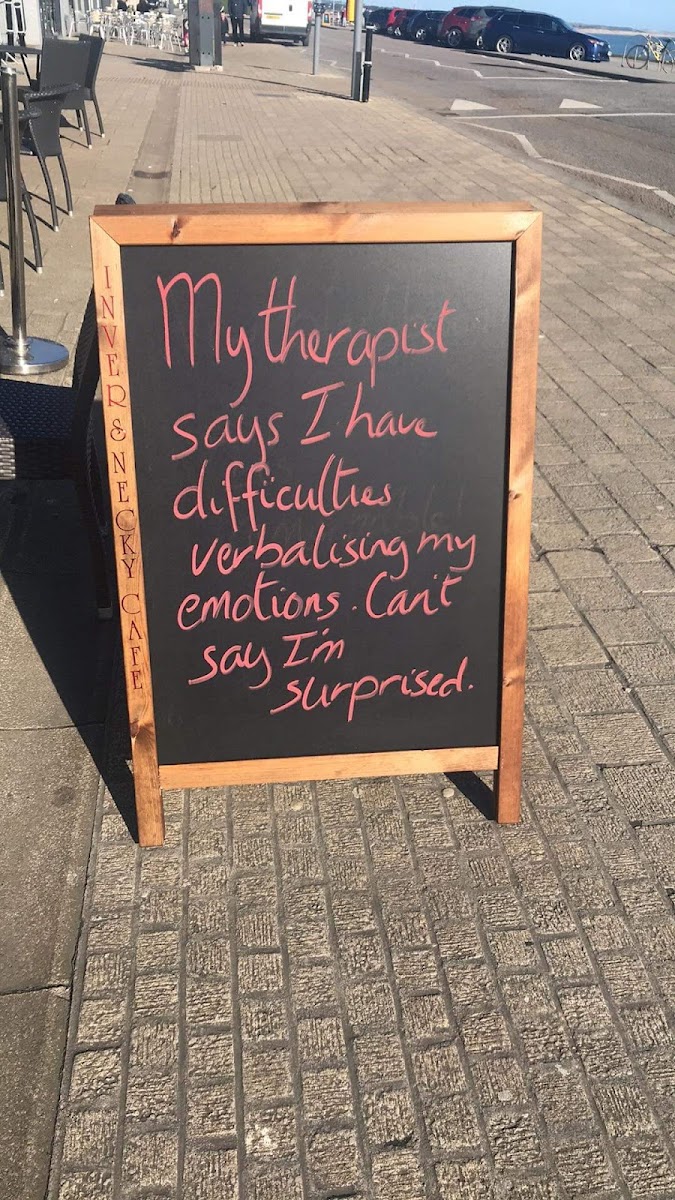 My therapist
says I have
difficulties
verbalising my
emotions. Can't
say I'm
surprised.
INVER & NECKY CAFE